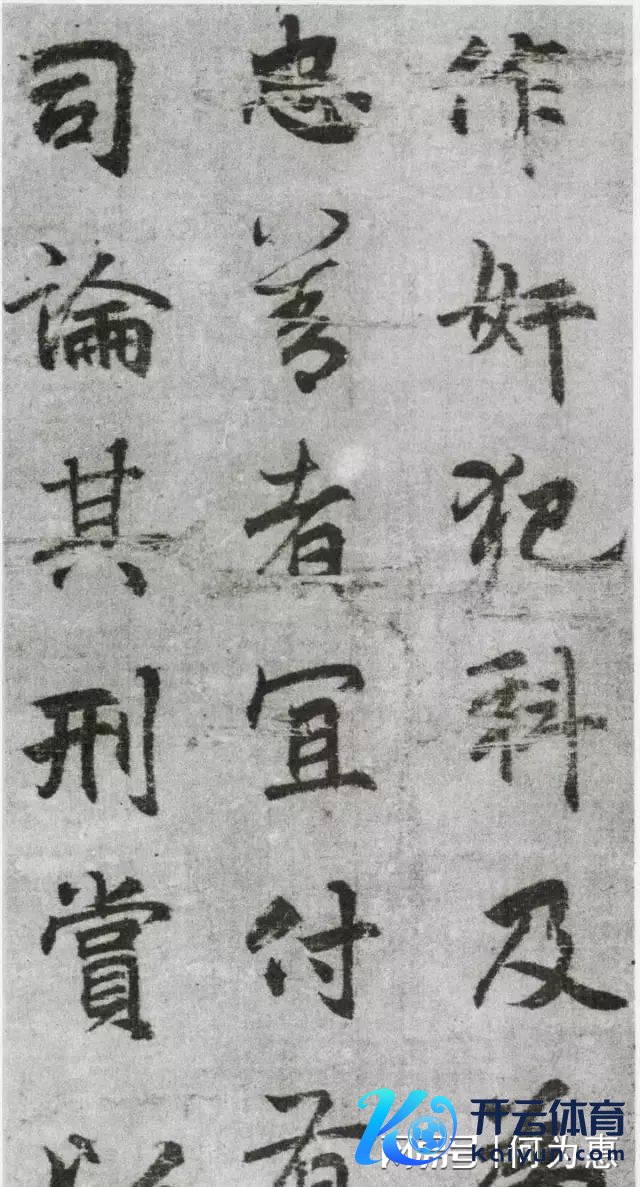 作奸犯科及為
忠善者宜付有
司論其刑賞以
开云体育
kaiyun.com
网易号 | 何为惠